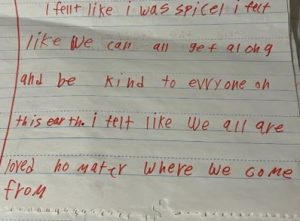 I fellt like i was spicel i felt
like we can all get along
and be kind to evryone on
this earth. i felt like we all are
loved no matter where we come
from